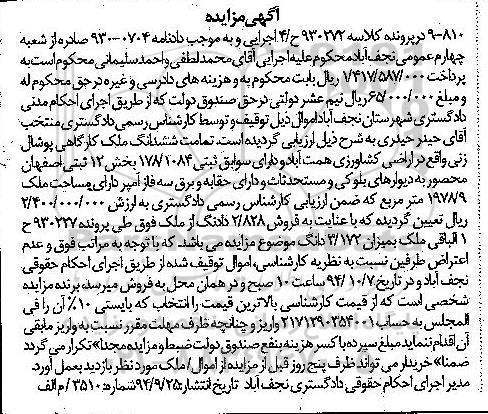 آگهی مزایده
۹-۸۱۰ درپرونده کلاسه ۹۳۰۲۷۲ ح/۴ اجرایی و به موجب دادنامه ۰۷۰۴-۹۳۰ صادره از شعبه
چهارم عمومی نجف آباد محکوم علیه اجرایی آقای محمد لطفی و احمد سلیمانی محکوم است به
پرداخت ۱/۴۱۷/۵۸۷/۰۰۰ ریال بابت محکوم به و هزینه های دادرسی و غیره درحق محکوم له
و مبلغ ۶۵/۰۰۰/۰۰۰ ریال نیم عشر دولتی درحق صندوق دولت که از طریق اجرای احکام مدنی
دادگستری شهرستان نجف آباد اموال ذیل توقیف و توسط کارشناس رسمی دادگستری منتخب
آقای حیدر حیدری به شرح ذیل ارزیابی گردیده است. تمامت ششدانگ ملک کارگاهی پوشال
زنی واقع در اراضی کشاورزی همت آباد و دارای سوابق ثبتی ۱۷۸/۱۰۸۴ بخش ۱۲ ثبتی اصفهان
محصور به دیوارهای بلوکی و مستحدثات و دارای حقابه و برق سه فاز آمپر دارای مساحت ملک
۱۹۷۸/۹ متر مربع که ضمن ارزیابی کارشناس رسمی دادگستری به ارزش ۲/۴۰۰/۰۰۰/۰۰۰
ریال تعیین گردیده که با عنایت به فروش ۲/۸۲۸ دادنگ از ملک فوق طی پرونده ۹۳۰۲۲۷ ح
۱ الباقی ملک بمیزان ۳/۱۷۲ دانگ موضوع مزایده می باشد که با توجه به مراتب فوق و عدم
اعتراض طرفین نسبت به نظریه کارشناسی، اموال توقیف شده از طریق اجرای احکام حقوقی
نجف آباد و در تاریخ ۹۴/۱۰/۷ ساعت ۱۰ صبح و در همان محل به فروش میرسد، برنده مزایده
شخصی است که از قیمت کارشناسی بالاترین قیمت را انتخاب که بایستی ۱۰٪ آن را فی
المجلس به حساب ۲۱۷۱۲۹۰۲۵۴۰۰۱ واریز و چنانچه ظرف مهلت مقرر نسبت به واریز مابقی
آن اقدام ننماید مبلغ سپرده با کسر هزینه بنفع صندوق دولت ضبط و مزایده مجدا» تکرار می گردد
ضمنا» خریدار می تواند ظرف پنج روز قبل از مزایده از اموال/ ملک مورد نظر بازدید بعمل آورد.
مدیر اجرای احکام حقوقی دادگستری نجف آباد تاریخ انتشار: ۹۴/۹/۲۵ شماره: ۳۵۱۰ / م الف